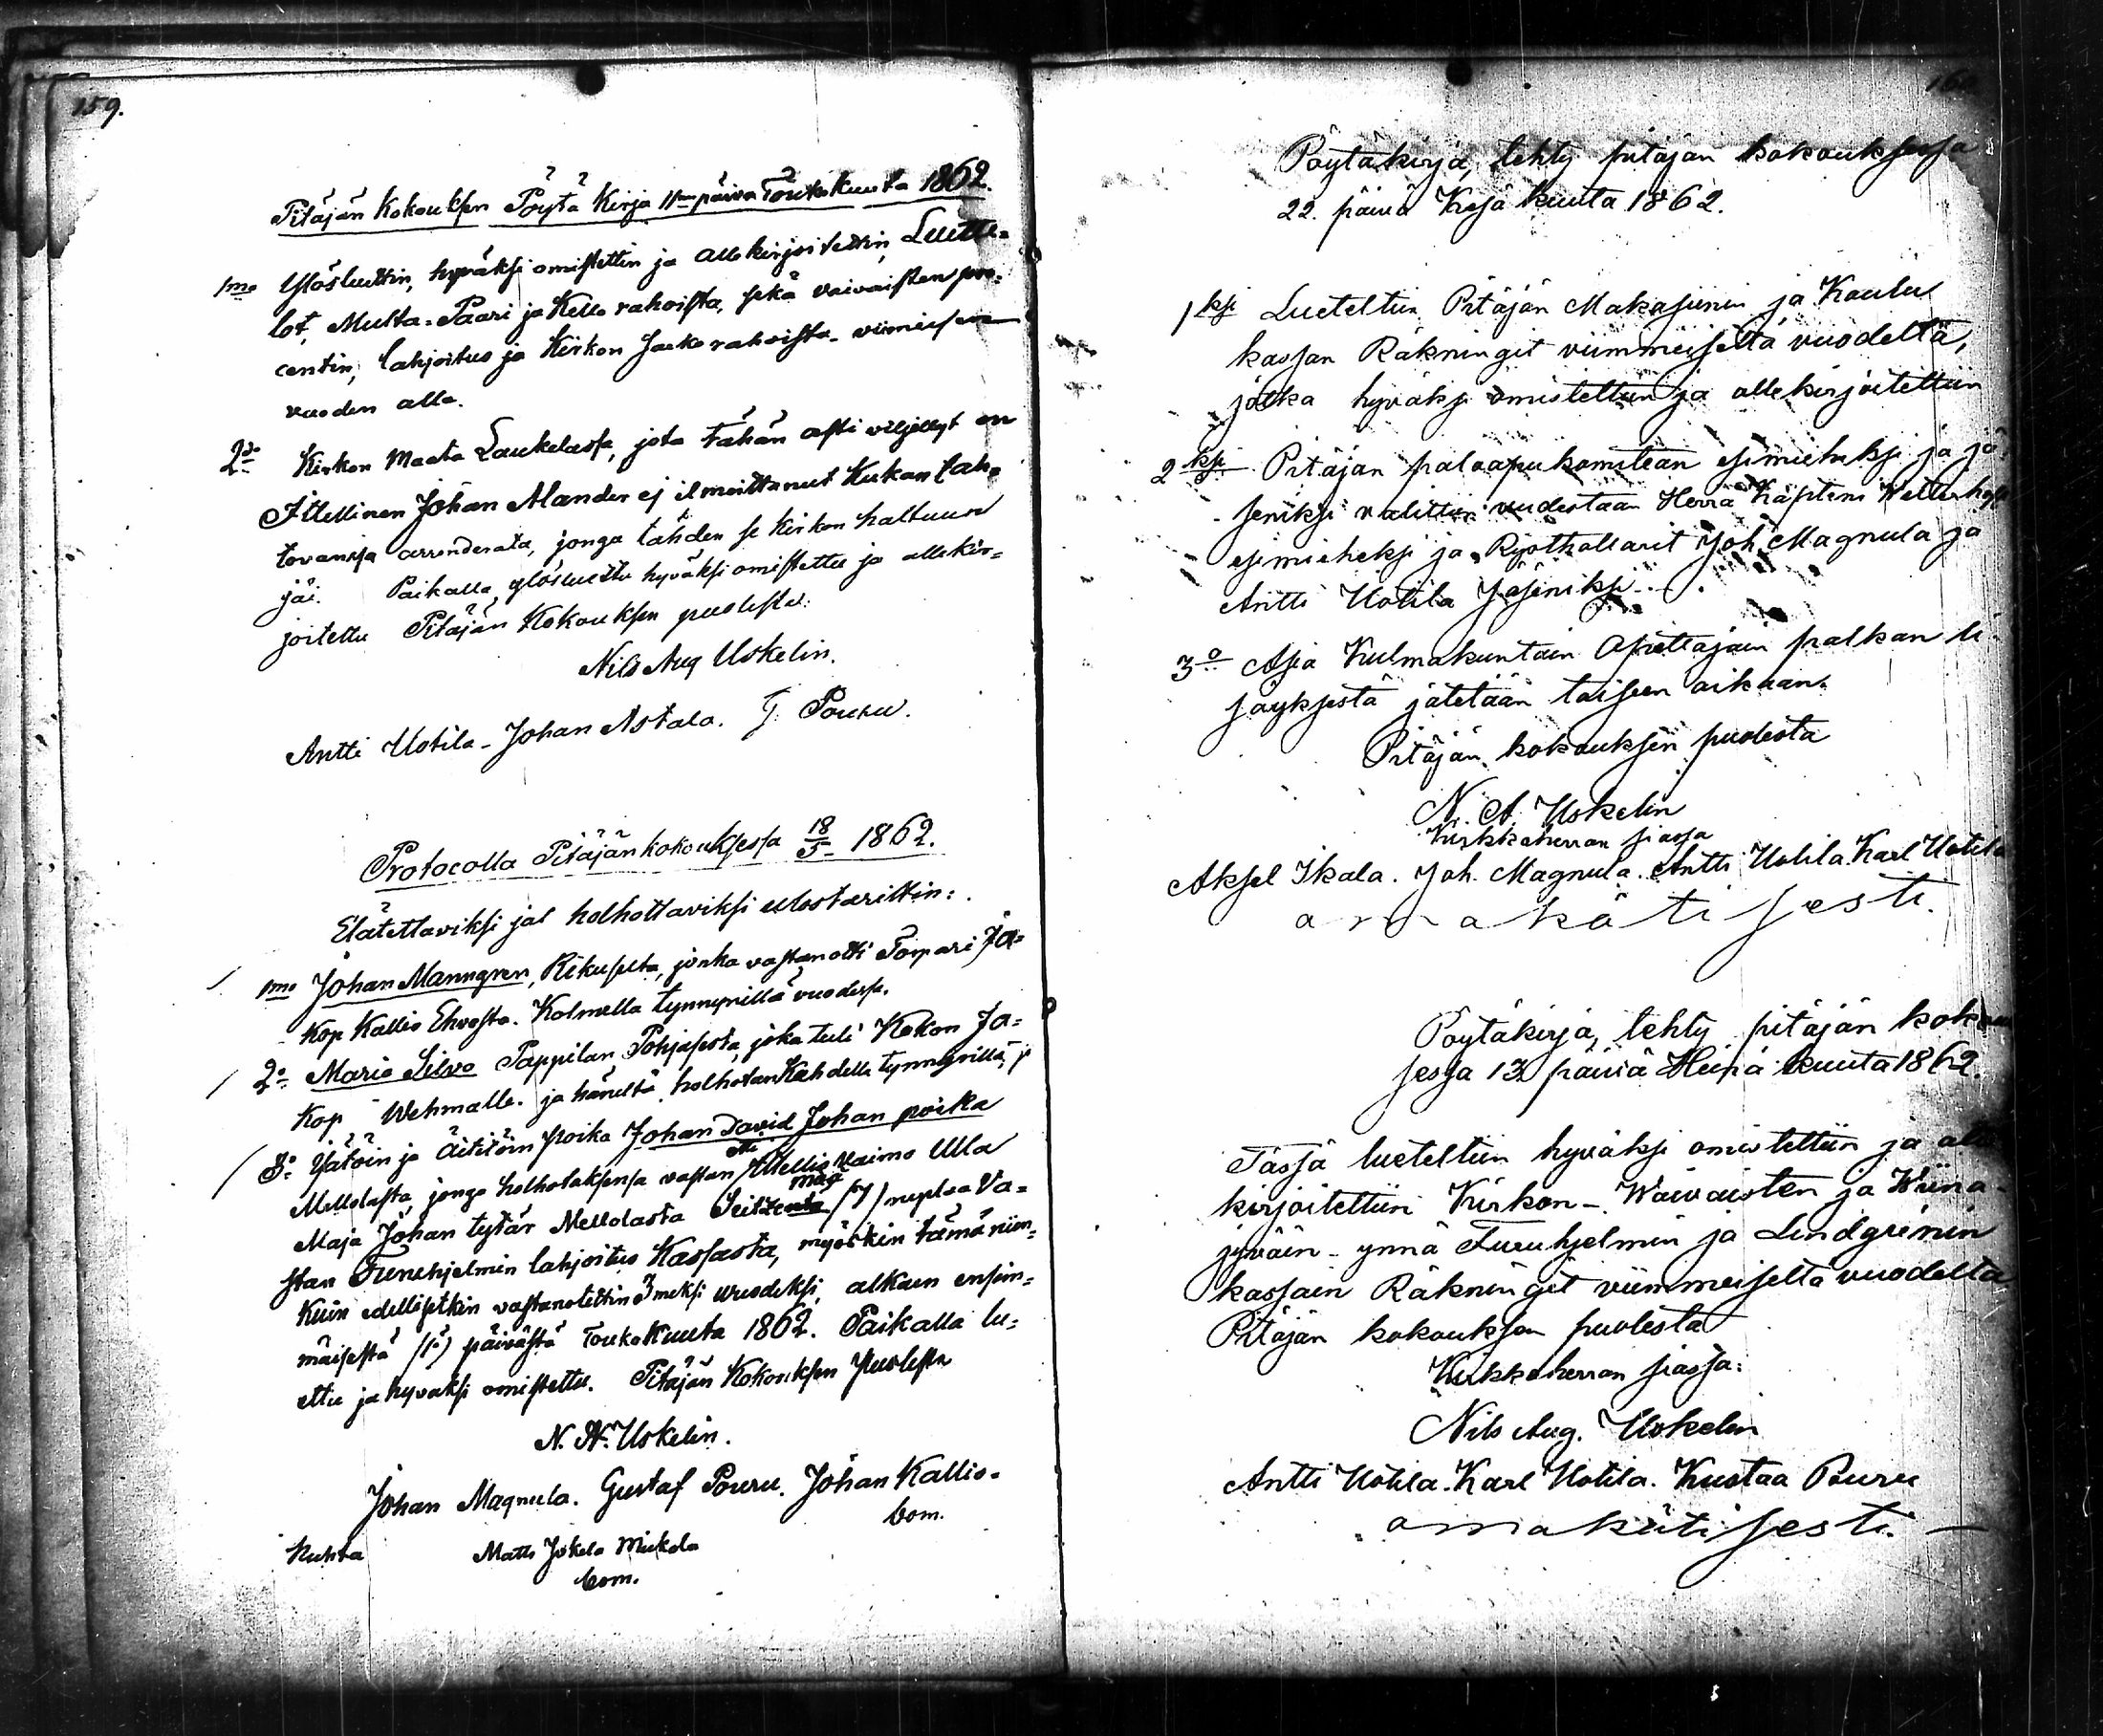 159.
Pitäjän Kokouksen Pöytä Kirja 11ta päivä Toukokuuta 1862.
1mo Ylösluettin, hyväksi omistettin ja allekirjoitettin, Luette-
lot, Multa- Paari ja Kello rahoista, sekä vaivaisten pro-
centin, lahjoitus ja Kirkon Jauko rahoista viimeisen
vuoden alla.
2do Kirkon maata Laukelassa, jota tähän asti viljellyt on
Itellinen Johan Alander ej ilmoittanut Kukan tah-
tovansa arrenderata, jonga tähden se Kirkon haltuun
jäi. Paikalla ylösluettu hyväksi omistettu ja allekir-
joitettu Pitäjän Kokouksen puolesta:
Nils Aug Uskelin.
Antti Uotila - Johan Astala. G. Pouru.
Protocolla Pitäjänkokouksessa 18/5 1862.
Elätettäviksi ja holhottaviksi ulostarittin:
1mo Johan Manngren, Rekuselta, jonka vastanotti Torpari Ja-
kop Kallio Ehvosta. Kolmella tynnyrillä vuodessa.
2o Maria Silvo Pappilan Pohjasta, joka tuli Kokon Ja-
kop Wehmalle. ja häneltä holhotan Kahdella tynnyrillä, ja
3o Ysätöin ja äititöin poika Johan David Johan poika
Mellolasta, jonga holhotaksensa vastan otti Itellis Vaimo Ulla
Maja Johan tytär Mellolasta Seitzemän /7/ ruplaa Va-
stan Furuhjelmin lahjoitus Kassasta, myöskin tämä niin-
kuin edellisetkin vastanotettin 3meksi vuodeksi, alkaen ensim-
mäisestä /1ä/ päivästä Toukokuuta 1862. Paikalla lu-
ettu ja hyväksi omistettu. Pitäjän Kokouksen Puolesta
N. A. Uskelin.
Johan Magnula. Gustaf Pouru. Johan Kallio.
bom.
Kuhta Matts Jokela Mickola
bom.
Pöytäkirja, tehty pitäjän kokouksessa
22. päivä Kesä kuuta 1862.
1ksi Lueteltiin Pitäjän Makasiinin ja Koulu
kassan Räkningit viimmeiseltä vuodelta,
jotka hyväksi omistettiin ja allekirjoitettiin
2ksi Pitäjän paloapukomitean esimieheksi ja jä-
seniksi valittiin uudestaan Herra Kapteni Wetterhoff
esimieheksi ja Rysthollarit Joh. Magnula ja
Antti Uotila Jäseniksi.
3o Asia Kulmakuntain Opettajain palkan li-
säyksestä jätetään toiseen aikaan.
Pitäjän kokouksen puolesta
N. A. Uskelin
Kirkkoherran siassa
Aksel Ikala. Joh. Magnula. Antti Uotila Karl Uotila
omakätisesti.
Pöytäkirja, tehty pitäjän kokouk
sessa 13 päivä Heinä kuuta 1862.
Tässä lueteltiin hyväksi omistettiin ja alle
kirjoitettiin Kirkon- Waivaisten ja Wiina-
jyväin- ynnä Furuhjelmin ja Lindgrenin
kassain Räkningit viimmeiseltä vuodelta
Pitäjän kokouksen puolesta
Kirkkoherran siassa:
Nils Aug. Uskelin
Antti Uotila. Karl Uotila. Kustaa Pouru
omakätisesti.